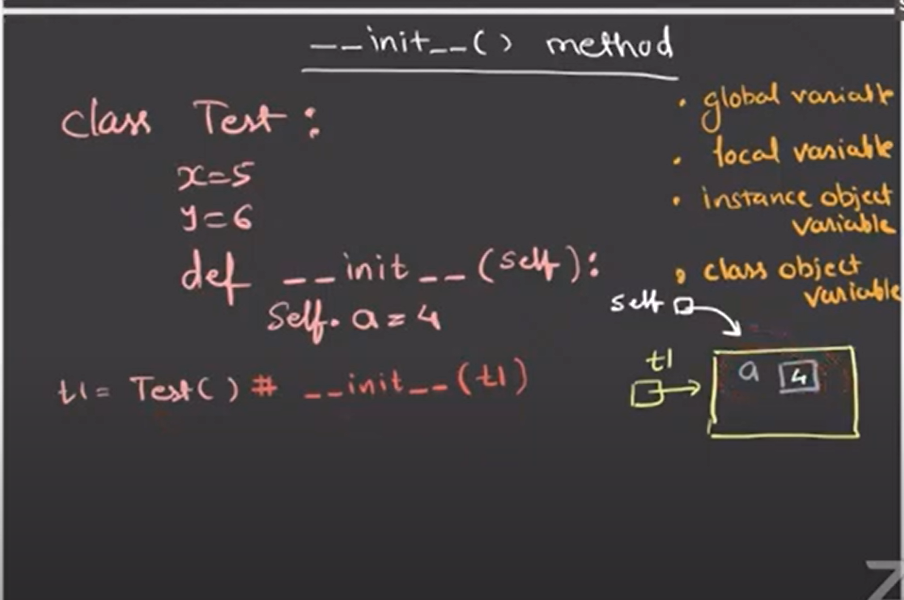 __init__() method
class Test:
x=5
y=6
def __init__(self):
Self.a=4
t1= Test() # __init__(t1)
• global variable
• local variable
• instance object
variable
• class object
variable
self
t1
a 4